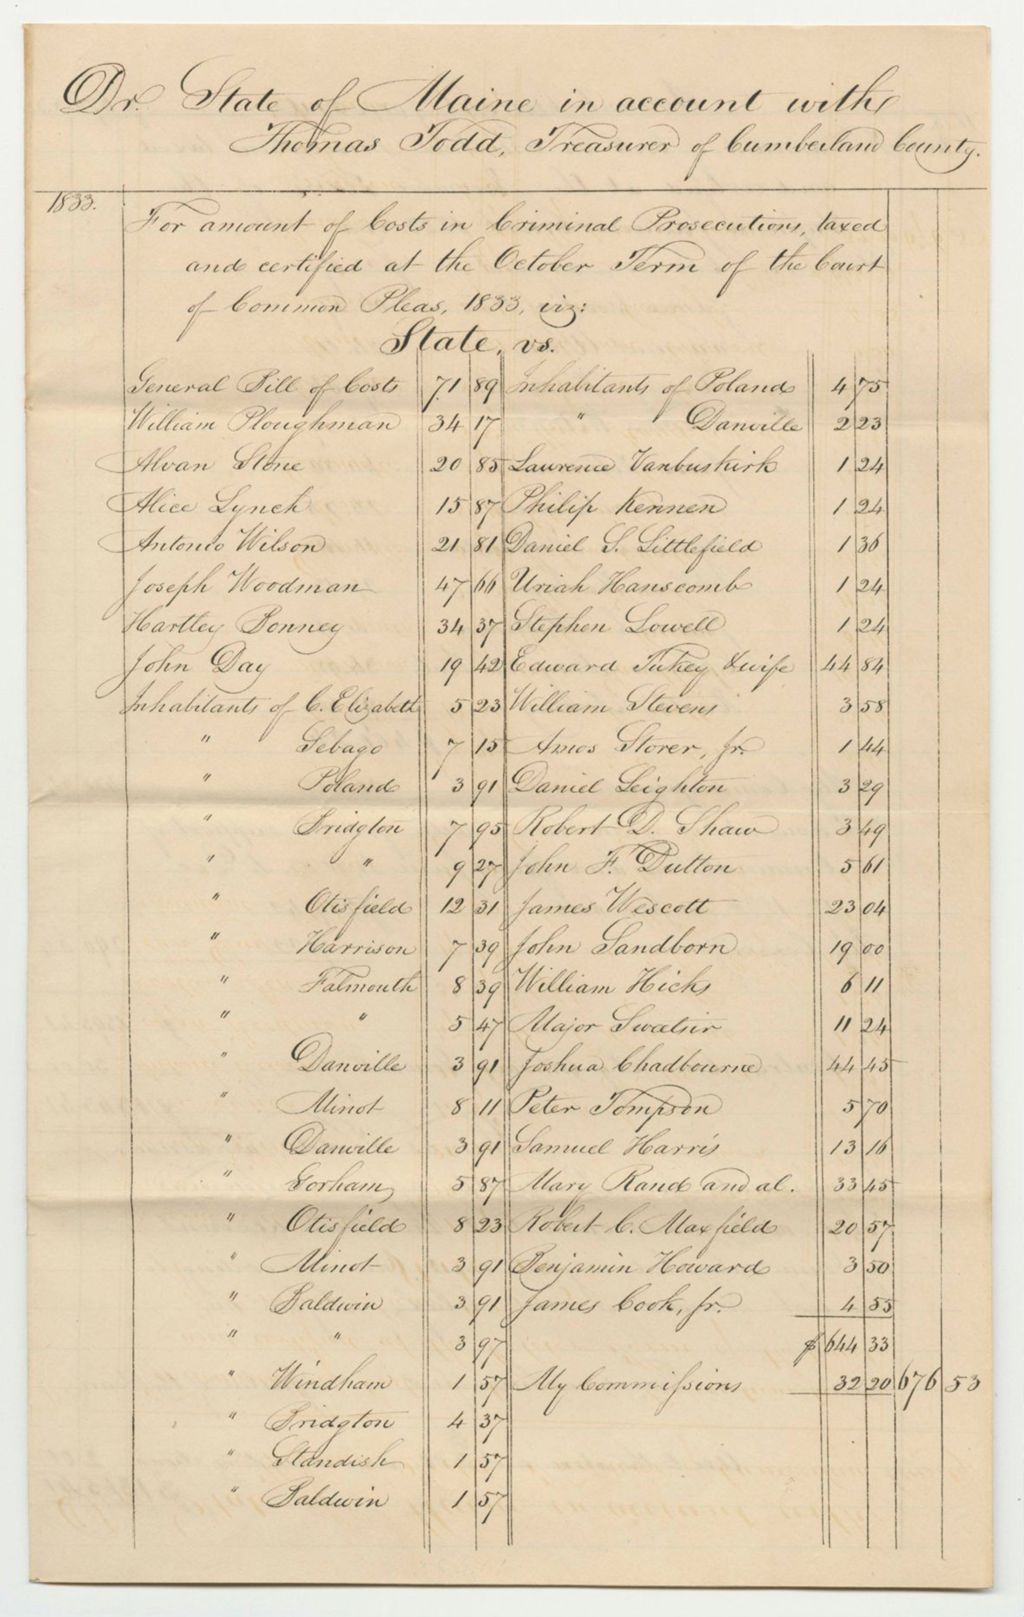 Dr. State of Maine in account with
Thomas Todd, Treasurer of Cumberland County.
1833.
For amount of Costs in Criminal Prosecutions, taxed
and certified at the October Term of the Court
of Common Pleas, 1833, viz:
State, vs.
General Bill of Costs 71 89 Inhabitants of Poland 4 75
William Ploughman 34 17 " Danville 2 23
Alvan Stone 20 85 Lawrence Vanbuskirk 1 24
Alice Lynch 15 87 Philip Kennen 1 24
Antonio Wilson 21 81 Daniel S. Littlefield 1 36
Joseph Woodman 47 66 Uriah Hanscomb 1 24
Hartley Bonney 34 37 Stephen Lowell 1 24
John Day 19 42 Edward Tukey & wife 44 84
Inhabitants of C. Elizabeth 5 23 William Stevens 3 58
" Sebago 7 15 Amos Storer, Jr. 1 44
" Poland 3 91 Daniel Leighton 3 29
" Bridgton 7 95 Robert D. Shaw 3 49
" " 9 27 John F. Dutton 5 61
" Otisfield 12 31 James Wescott 23 04
" Harrison 7 39 John Sandborn 19 00
" Falmouth 8 39 William Hicks 6 11
" " 5 47 Major Swetsir 11 24
" Danville 3 91 Joshua Chadbourne 44 45
" Minot 8 11 Peter Tompson 5 70
" Danville 3 91 Samuel Harris 13 16
" Gorham, 5 87 Mary Rand and al. 33 45
" Otisfield 8 23 Robert C. Maxfield 20 57
" Minot 3 91 Benjamin Howard 3 50
" Baldwin 3 91 James Cook, Jr. 4 55
" " 3 97 $ 644 33
" Windham 1 57 My Commissions 32 20 676 53
" Bridgton 4 37
" Standish 1 57
" Baldwin 1 57